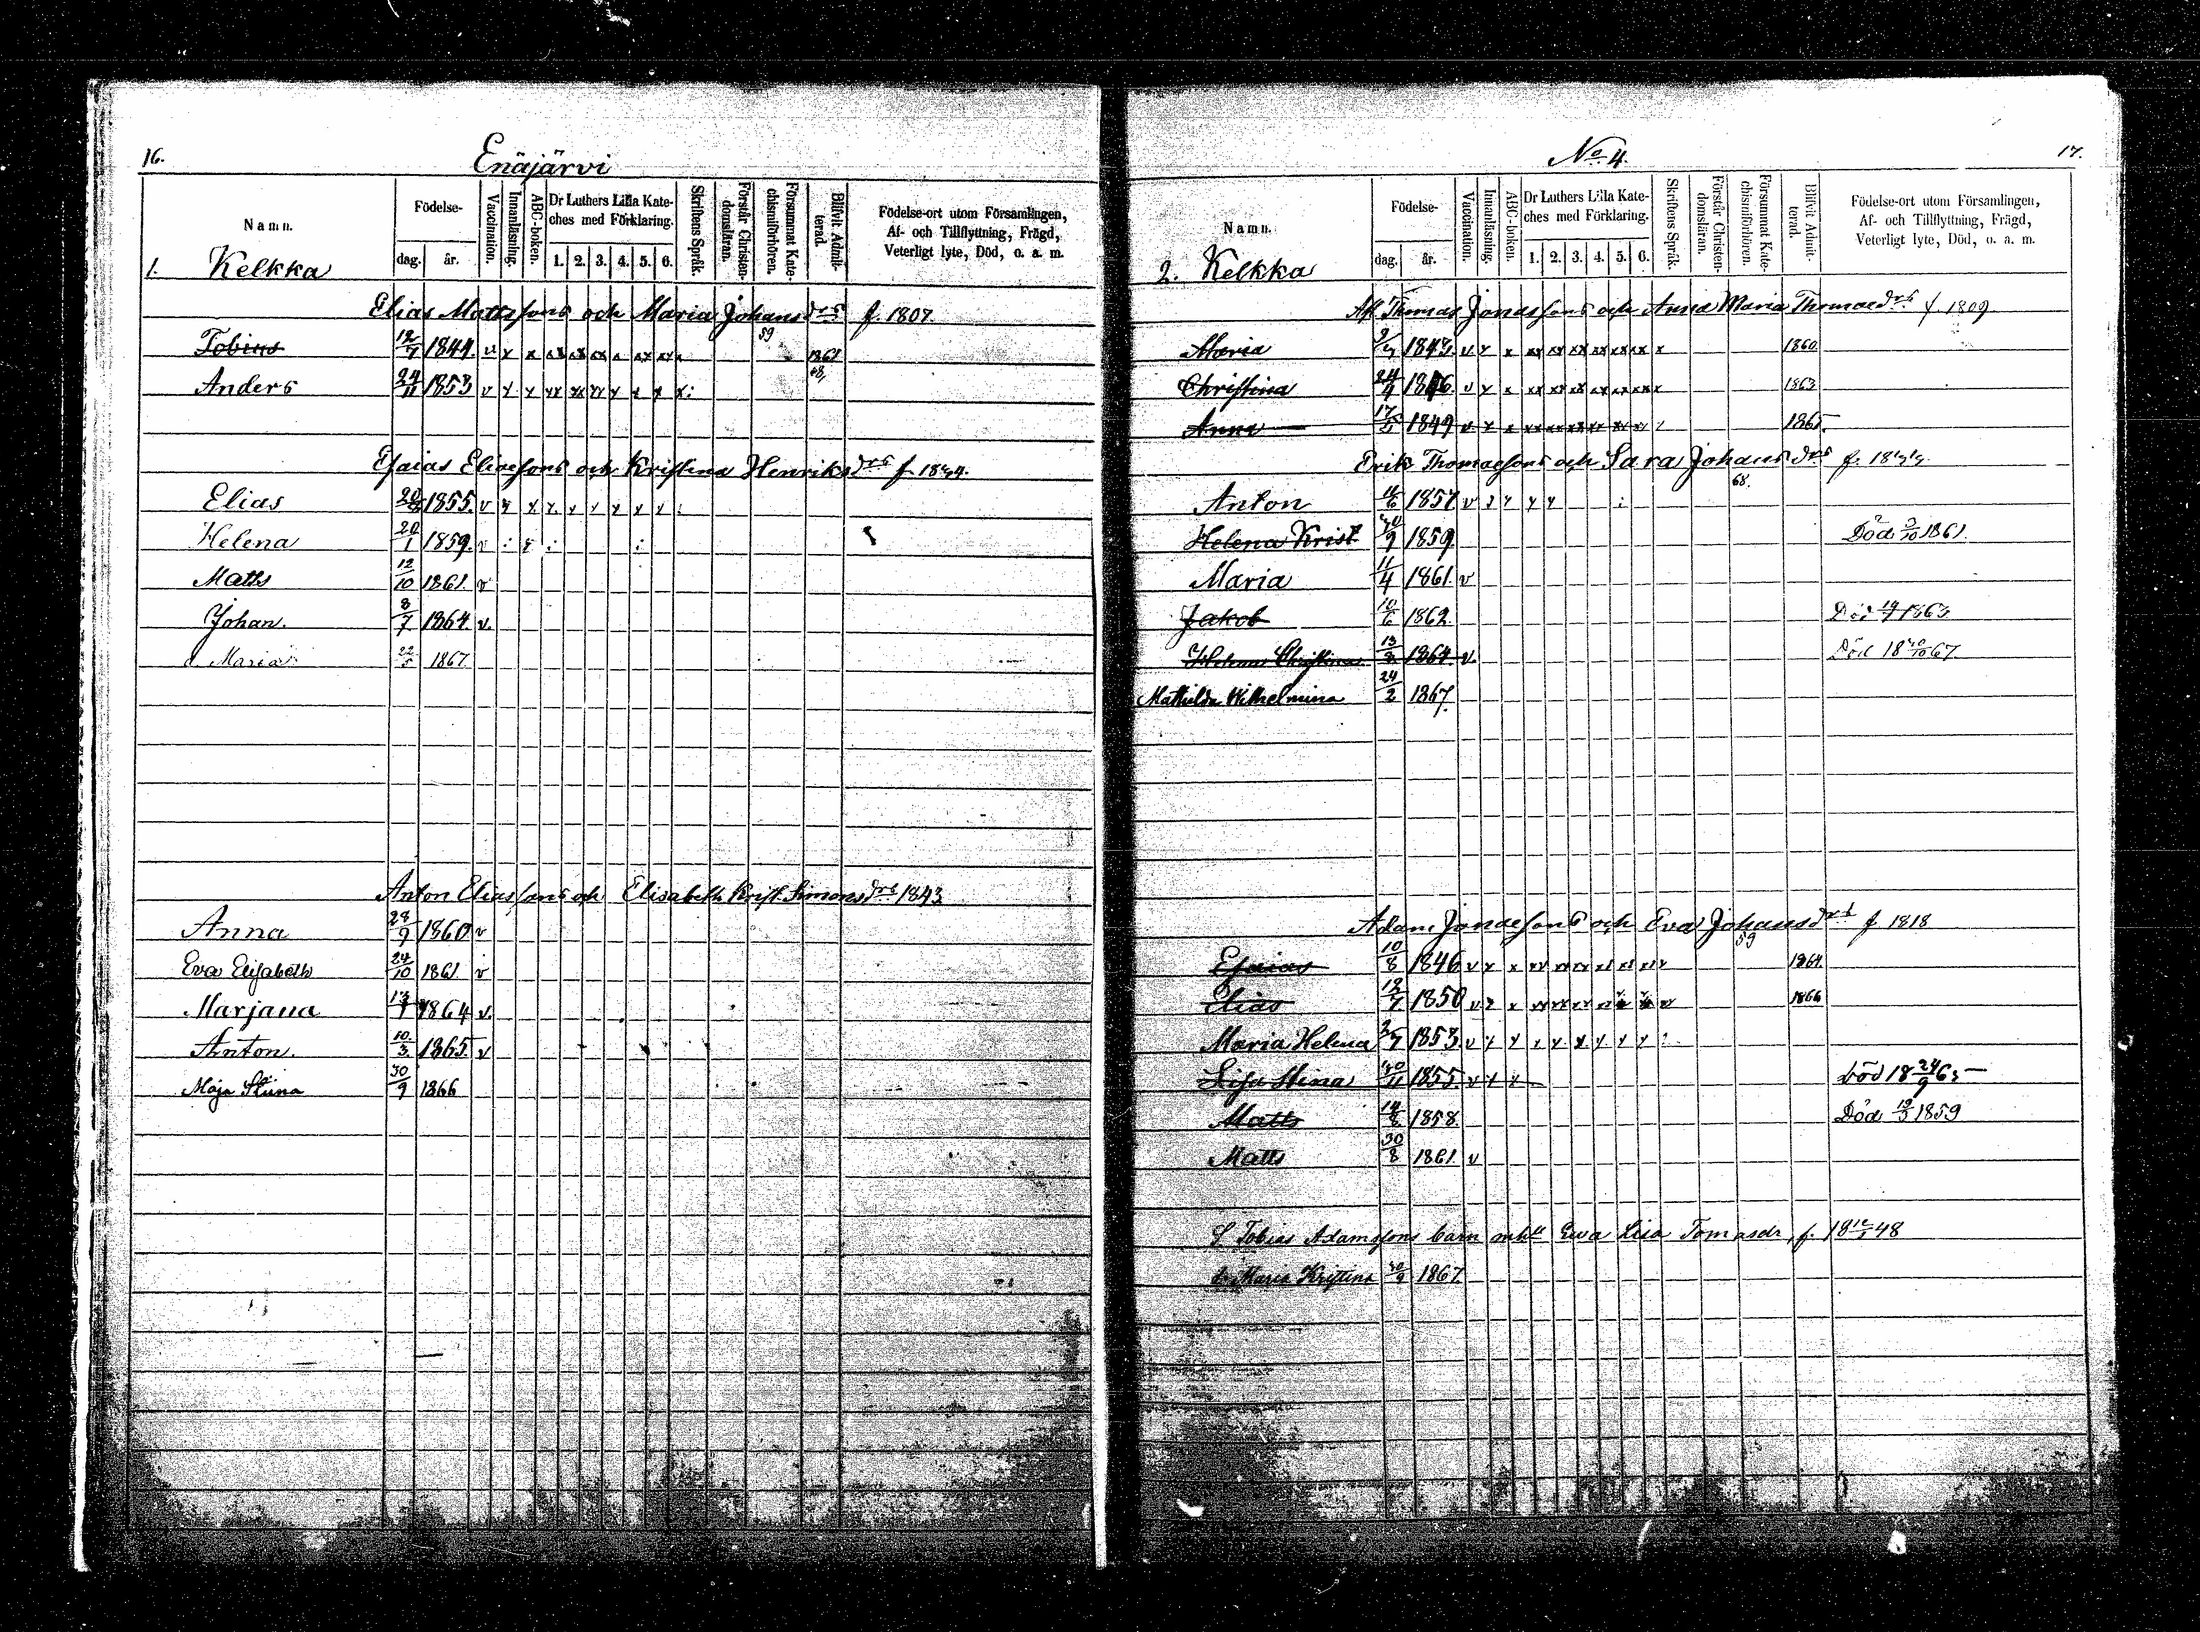 16.
Enäjärvi
Namn.
Födelse-
dag.
år.
Vaccination.
Innanläsning.
ABC-boken.
Dr Luthers Lilla Kate-
ches med Förklaring.
1. 2. 3. 4. 5. 6.
Skriftens Språk.
Förstår Christen-
domsläran.
Försummat Kate-
chismiförhören.
Blifvit Admit-
terad.
Födelse-ort utom Församlingen,
Af- och Tillflyttning, Frägd,
Veterligt lyte, Död, o. a. m.
1. Kelkka
Elias Mattssons och Maria Johansdrs f. 1807.
59
Tobias 12/7 1844. v x x xx xx xx x xx xx 1861
Anders 24/11 1853 v x x xx xx xx x x x x: 68,
Esaias Eliaesons och Kristina Henriksdrs f.
Elias 1855. v x x x x x x x x :
Helena 20/1 1859. v : x : :
Matts 12/10 1861. v
Johan. 8/7 1864. v.
d. Maria 22/5 1867
Anton Eliassons och Elisabeth Krist. Simonsdrs 1843
Anna 28/9 1860 v
Eva Elisabeth 24/10 1861 v
Marjana 1864 v.
Anton. 10/3 1865. v
Maja Stiina 30/9 1866
No 4.
17.
Namn.
Födelse-
dag.
år.
Vaccination.
Innanläsning.
ABC-boken.
Dr Luthers Lilla Kate-
ches med Förklaring.
1. 2. 3. 4. 5. 6.
Skriftens Språk.
Förstår Christen-
domsläran.
Försummat Kate-
chismiförhören.
Blifvit Admit-
terad.
Födelse-ort utom Församlingen,
Af- och Tillflyttning, Frägd,
Veterligt lyte, Död, o. a. m.
2. Kelkka
Thomas Jonassons och Anna Maria Thomaedrs f. 1809
Maria 1843. v x x xx xx xx xx xx xx x 1860
Christina 24/4 1846 v x x xx xx xx xx xx xx x 1863
Anna 17/5 1849 v x x xx xx xx xx xx xx 1865
Erik Thomaesons och Sara Johansdrs f.
68.
Anton 11/6 1857 v x x x x :
Helena Krist 1859 Död 3/10 1861.
Maria 11/4 1861. v
Jakob 10/6 1862. Död 1863
Christina 13/3 1864. v. Död 67
Mathilda Wilhelmina 24/2 1867.
Adam Jonaesons och Eva Johansdrs f. 1818
59
Esaias 10/8 1846 v x x xx xx xx xx xx xx x 1864
Elias 12/7 1850 v x x xx xx xx 1866
Maria Helena 1853. v x x x x x x x x :
Lisa Stina 1855. v x x död 18 24/9 65
Matts 14/8 1858. Död 1859
Matts 30/8 1861 v
S Tobias Adamssons barn mhu Ewa Lisa Tomasdr, f. 48
d. Maria Kristina 1867.